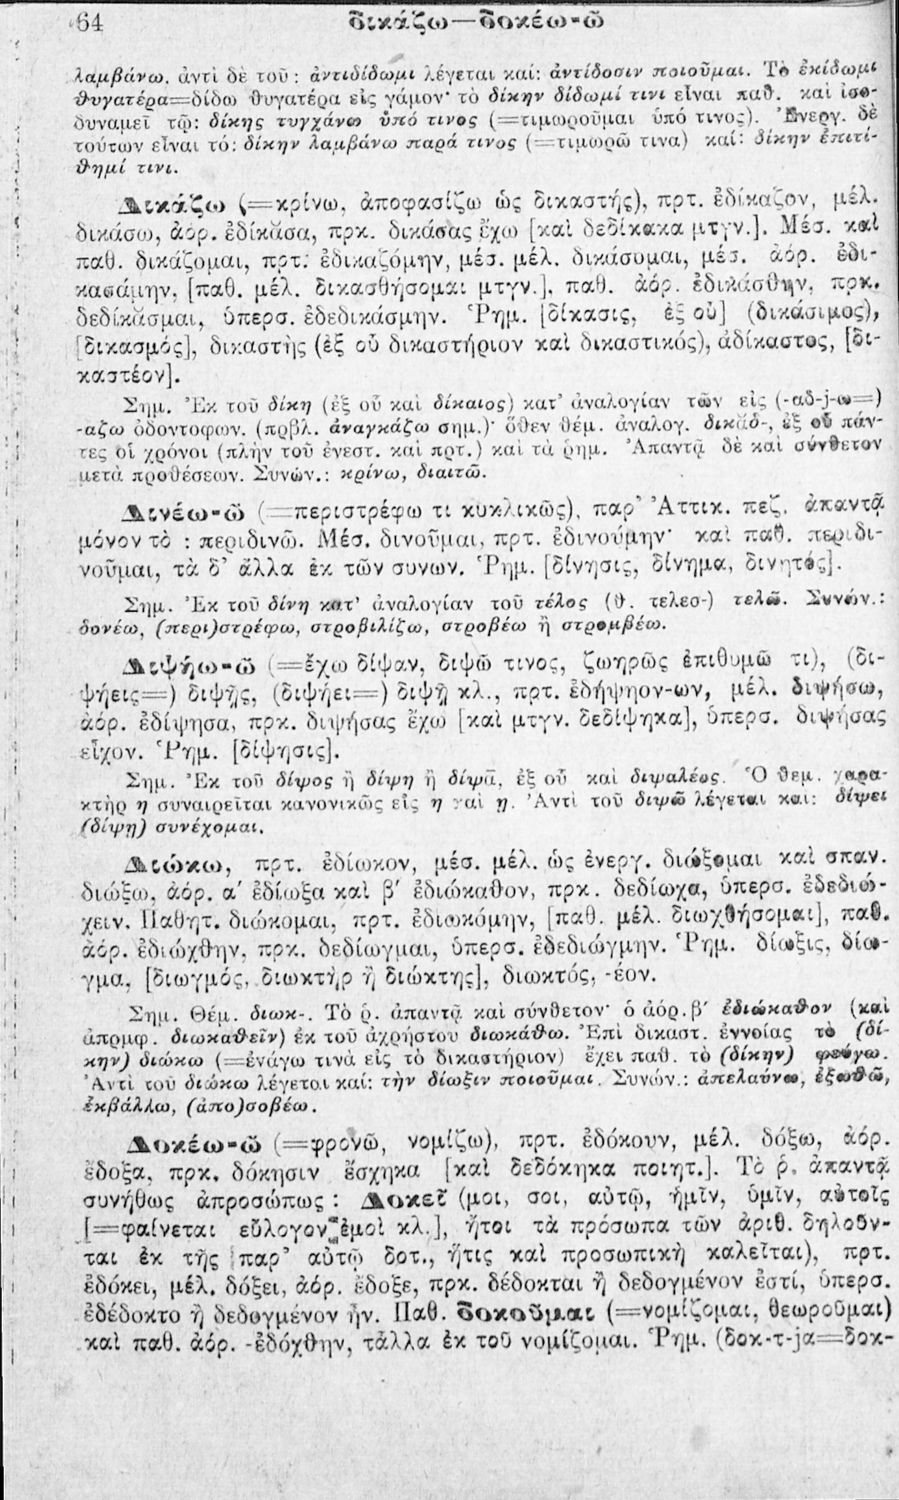 64 δικάζω—δοκέω-ῶ
λαμβάνω. ἀντὶ δὲ τοῦ: ἀντιδίδωμι λέγεται καί: ἀντίδοσιν ποιοῦμαι. Τὸ ἐκίδωμι
θυγατέρα=δίδω θυγατέρα εἰς γάμον· τὸ δίκην δίδωμί τινι εἶναι παθ. καὶ ἰσο-
δυναμεῖ τῷ: δίκης τυγχάνω ὑπό τινος (=τιμωροῦμαι ὑπό τινος). Ἐνεργ. δὲ
τούτων εἶναι τό: δίκην λαμβάνω παρά τινος (=τιμωρῶ τινα) καί: δίκην ἐπιτί-
θημί τινι.
Δικάζω (=κρίνω, ἀποφασίζω ὡς δικαστής), πρτ. ἐδίκαζον, μέλ.
δικάσω, ἀόρ. ἐδίκᾰσα, πρκ. δικάσας ἔχω [καὶ δεδίκακα μτγν.]. Μέσ. καὶ
παθ. δικάζομαι, πρτ. ἐδικαζόμην, μέσ. μέλ. δικάσομαι, μέσ. ἀόρ. ἐδι-
κασάμην, [παθ. μέλ. δικασθήσομαι μτγν.], παθ. ἀόρ. ἐδικάσθην, πρκ.
δεδίκᾰσμαι, ὑπερσ. ἐδεδικάσμην. Ῥημ. [δίκασις, ἐξ οὗ] (δικάσιμος),
[δικασμός], δικαστὴς (ἐξ οὗ δικαστήριον καὶ δικαστικός), ἀδίκαστος, [δι-
καστέον].
Σημ. Ἐκ τοῦ δίκη (ἐξ οὗ καὶ δίκαιος) κατ' ἀναλογίαν τῶν εἰς (-αδ-j-ω=)
-αζω ὀδοντοφων. (πρβλ. ἀναγκάζω σημ.)· ὅθεν θέμ. ἀναλογ. δικᾰδ-, ἐξ οὗ πάν-
τες οἱ χρόνοι (πλὴν τοῦ ἐνεστ. καὶ πρτ.) καὶ τὰ ῥημ. Ἀπαντᾷ δὲ καὶ σύνθετον
μετὰ προθέσεων. Συνών.: κρίνω, διαιτῶ.
Δινέω-ῶ (=περιστρέφω τι κυκλικῶς), παρ' Ἀττικ. πεζ. ἀπαντᾷ
μόνον τὸ : περιδινῶ. Μέσ. δινοῦμαι, πρτ. ἐδινούμην· καὶ παθ. περιδι-
νοῦμαι, τὰ δ' ἄλλα ἐκ τῶν συνων. Ῥημ. [δίνησις, δίνημα, δινητός].
Σημ. Ἐκ τοῦ δίνη κατ' ἀναλογίαν τοῦ τέλος (θ. τελεσ-) τελῶ. Συνών.:
δονέω, (περι)στρέφω, στροβιλίζω, στροβέω ἢ στρομβέω.
Διψήω-ῶ (=ἔχω δίψαν, διψῶ τινος, ζωηρῶς ἐπιθυμῶ τι), (δι-
ψήεις=) διψῇς, (διψήει=) διψῇ κλ., πρτ. ἐδήψηον-ων, μέλ. διψήσω,
ἀόρ. ἐδίψησα, πρκ. διψήσας ἔχω [καὶ μτγν. δεδίψηκα], ὑπερσ. διψήσας
εἶχον. Ῥημ. [δίψησις].
Σημ. Ἐκ τοῦ δίψος ἢ δίψη ἢ δίψᾰ, ἐξ οὗ καὶ διψαλέος. Ὁ θεμ. χαρα-
κτὴρ η συναιρεῖται κανονικῶς εἰς η καὶ ῃ. Ἀντὶ τοῦ διψῶ λέγεται καί: δίψει
(δίψῃ) συνέχομαι.
Διώκω, πρτ. ἐδίωκον, μέσ. μέλ. ὡς ἐνεργ. διώξομαι καὶ σπαν.
διώξω, ἀόρ. α΄ ἐδίωξα καὶ β΄ ἐδιώκαθον, πρκ. δεδίωχα, ὑπερσ. ἐδεδιώ-
χειν. Παθητ. διώκομαι, πρτ. ἐδιωκόμην, [παθ. μέλ. διωχθήσομαι], παθ.
ἀόρ. ἐδιώχθην, πρκ. δεδίωγμαι, ὑπερσ. ἐδεδιώγμην. Ῥημ. δίωξις, δίω-
γμα, [διωγμός, διωκτὴρ ἢ διώκτης], διωκτός, -έον.
Σημ. Θέμ. διωκ-. Τὸ ῥ. ἀπαντᾷ καὶ σύνθετον· ὁ ἀόρ. β΄ ἐδιώκαθον (καὶ
ἀπρμφ. διωκαθεῖν) ἐκ τοῦ ἀχρήστου διωκάθω. Ἐπὶ δικαστ. ἐννοίας τὸ (δί-
κην) διώκω (=ἐνάγω τινὰ εἰς τὸ δικαστήριον) ἔχει παθ. τὸ (δίκην) φεύγω.
Ἀντὶ τοῦ διώκω λέγεται καί: τὴν δίωξιν ποιοῦμαι. Συνών.: ἀπελαύνω, ἐξωθῶ,
ἐκβάλλω, (ἀπο)σοβέω.
Δοκέω-ῶ (=φρονῶ, νομίζω), πρτ. ἐδόκουν, μέλ. δόξω, ἀόρ.
ἔδοξα, πρκ. δόκησιν ἔσχηκα [καὶ δεδόκηκα ποιητ.]. Τὸ ῥ. ἀπαντᾷ
συνήθως ἀπροσώπως : Δοκεῖ (μοι, σοι, αὐτῷ, ἡμῖν, ὑμῖν, αὐτοῖς
[=φαίνεται εὔλογον ἐμοὶ κλ.], ἤτοι τὰ πρόσωπα τῶν ἀριθ. δηλοῦν-
ται ἐκ τῆς παρ' αὐτῷ δοτ., ἥτις καὶ προσωπικὴ καλεῖται), πρτ.
ἐδόκει, μέλ. δόξει, ἀόρ. ἔδοξε, πρκ. δέδοκται ἢ δεδογμένον ἐστί, ὑπερσ.
ἐδέδοκτο ἢ δεδογμένον ἦν. Παθ. δοκοῦμαι (=νομίζομαι, θεωροῦμαι)
καὶ παθ. ἀόρ. -ἐδόχθην, τἆλλα ἐκ τοῦ νομίζομαι. Ῥημ. (δοκ-τ-ja=δοκ-